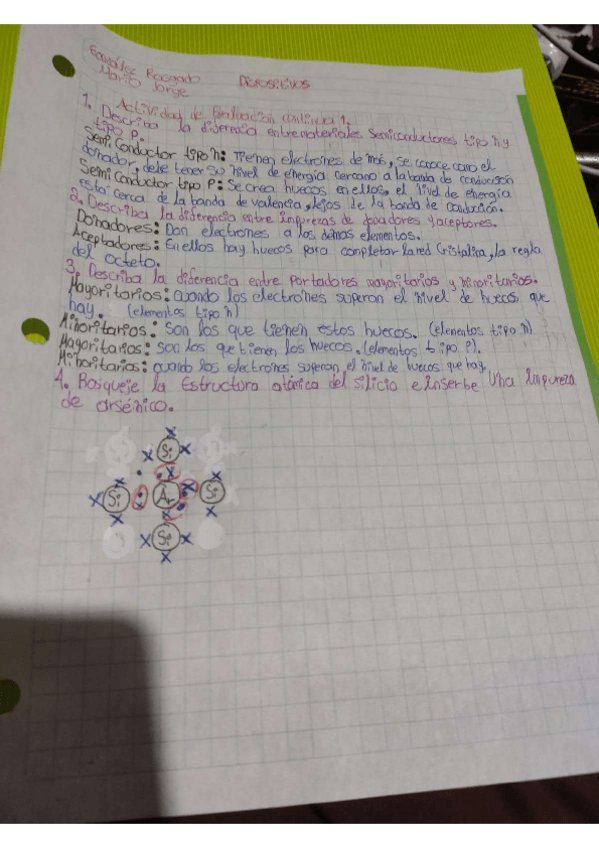 González Rosgado
Mario Jorge
DISPOSITIVOS
Actividad de Evaluación continua 1.
1. Describa la diferencia entre materiales semiconductores tipo n y
tipo P.
Semi Conductor tipo n: Tienen electrones de más, se conoce como el
donador, debe tener su nivel de energía cercano a la banda de conducción
Semi Conductor tipo P: Se crea huecos en ellos, el nivel de energía
está cerca de la banda de valencia, lejos de la banda de conducción.
2. Describa la diferencia entre impurezas de donadores y aceptores.
Donadores: Don electrones a los demás elementos.
Aceptadores: En ellos hay huecos para completar la red cristalica, la regla
del octeto.
3. Describa la diferencia entre portadores mayoritarios y minoritarios.
Mayoritarios: cuando los electrones superan el nivel de huecos que
hay. (elementos tipo n)
Minoritarios: son los que tienen estos huecos. (elementos tipo n)
Mayoritarios: son los que tienen los huecos. (elementos tipo P).
Minoritarios: cuando los electrones superan el nivel de huecos que hay.
4. Bosqueje la Estructura atómica del silicio e inserte una impureza
de arsénico.
Si
Si Ar Si
Si